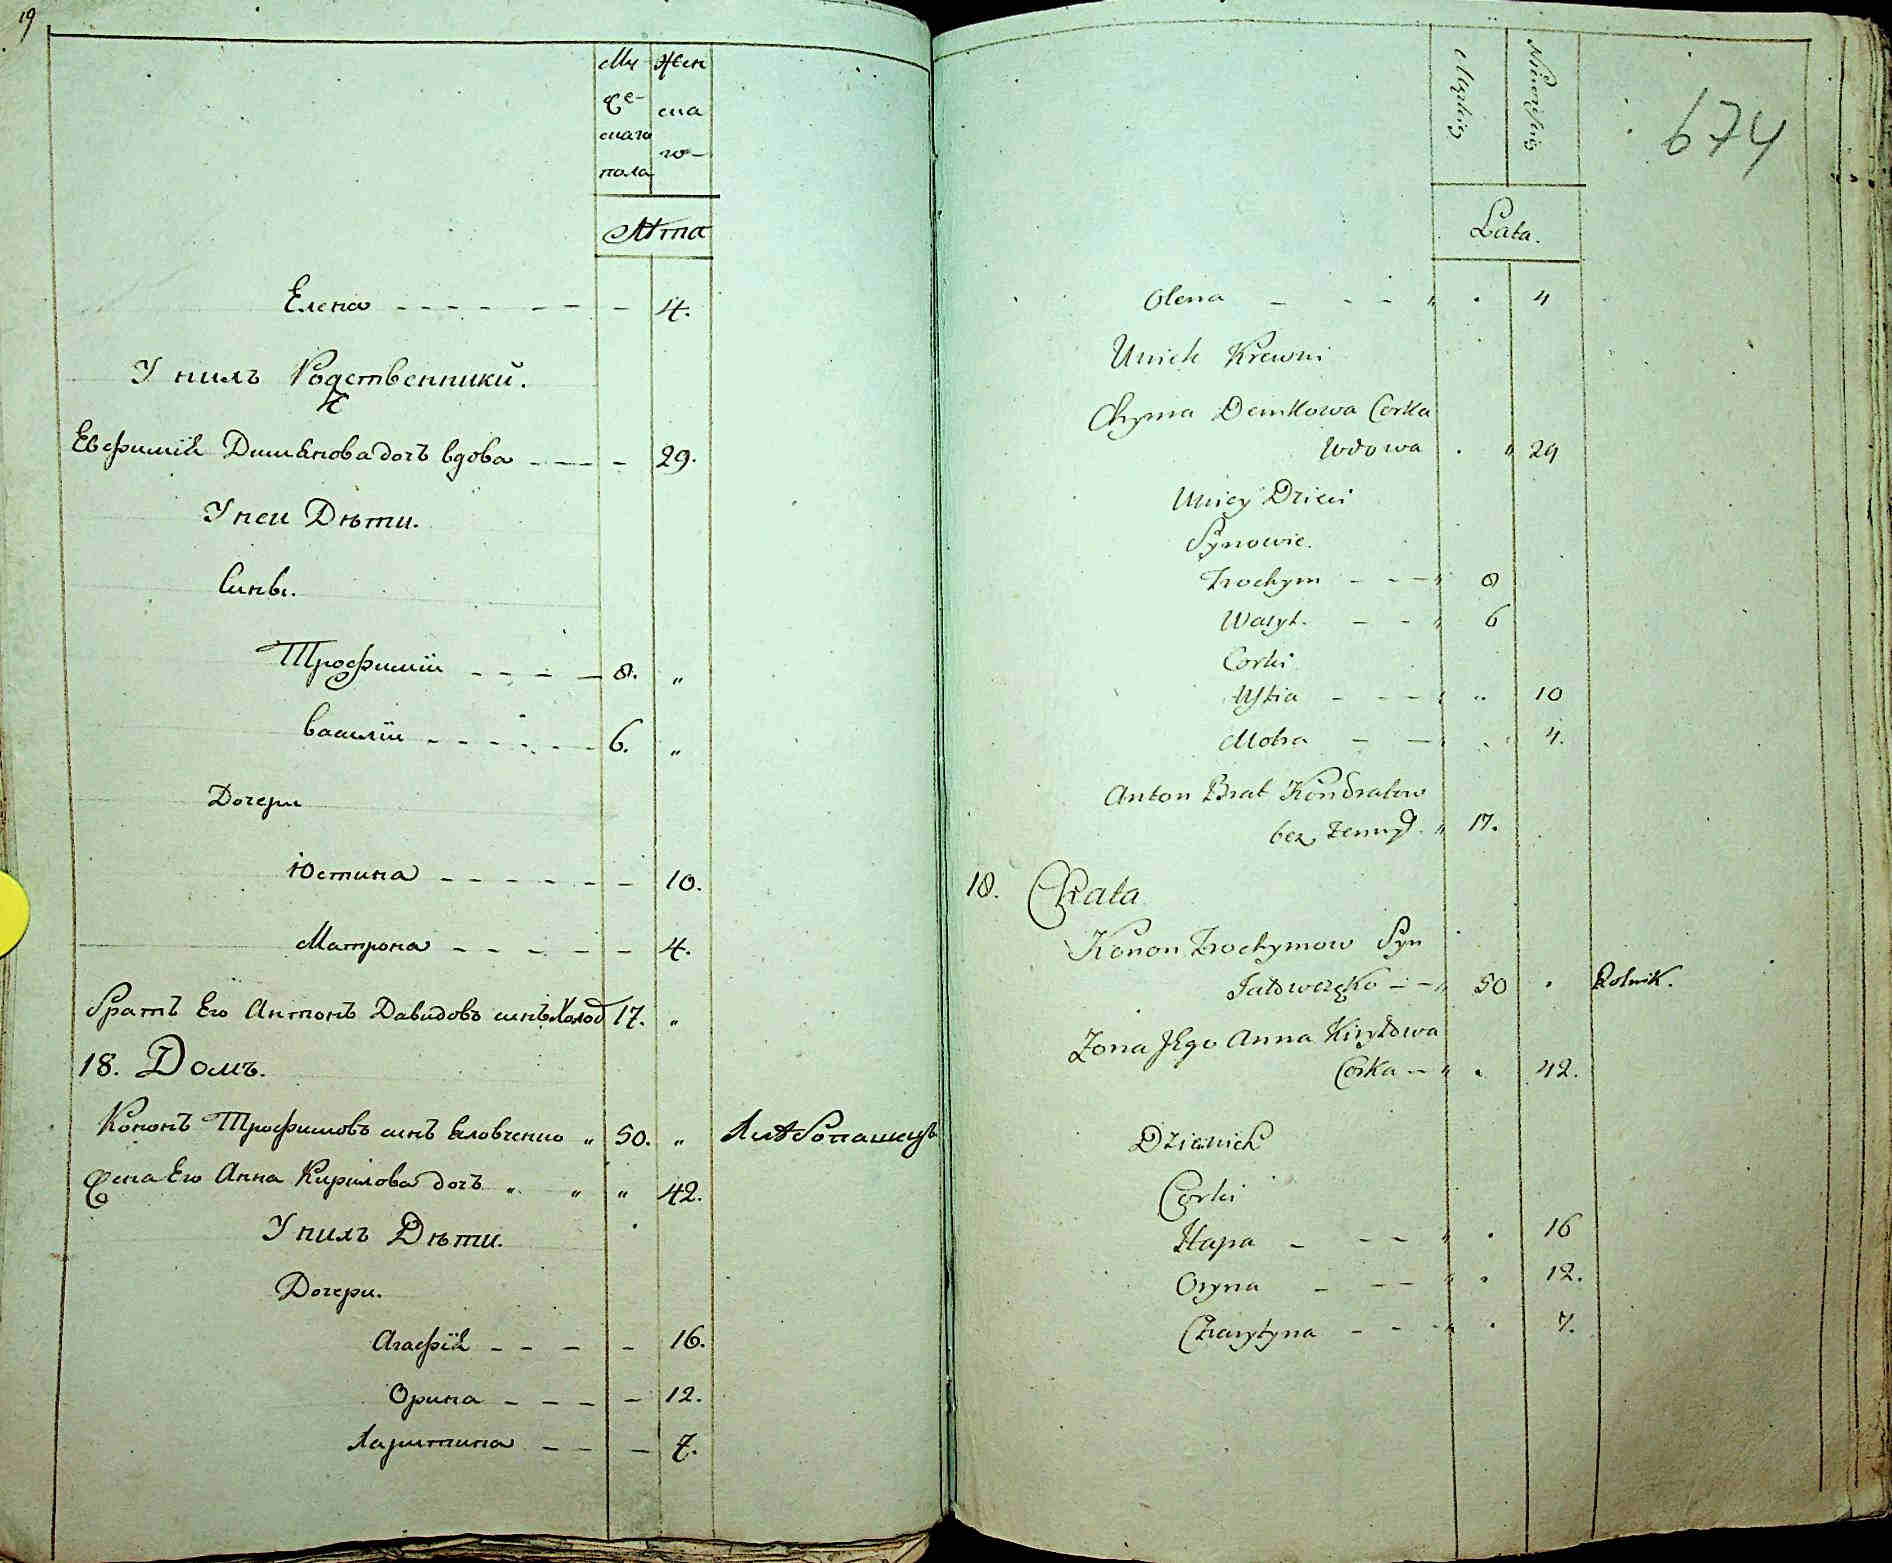 19
Му Жен
же- ска
скаго го-
пола
Лѣта
Елена 4.
У нихъ Родственники.
Евфимія Димянова дочъ вдова 29.
У неи Дѣти.
Сины.
Трофимiи 8. „
василiи 6. „
Дочери
Юстина 10.
Матрона 4.
братъ Его Антонъ Давидовъ синъ Холод 17. „
18. Домъ.
Кононъ Трофимовъ синъ „ 50. „
Жена Его Анна Кирилова дочъ „ „ „ 42.
У нихъ Дѣти.
Дочери.
Агафія 16.
Орина 12.
Харитина 7.
Męskiey Niewieskiey
674
Lata.
Olena " . 4
Unich Krewni
Chyma Demkowa Corka
Wdowa . " 29
Uniey Dzieci
Synowie.
Trochym " 8
Wasyl. " 6
Corki
Ustia " .. 10
Motra . . 4.
Anton Brat Kondratow
bez żenny. " 17.
18. Chata
Konon Trochymow Syn
" 50 . Rolnik.
Zona Jego Anna Kiryłowa
Corka " . 42.
Dzieci ich
Corki
Hapa " . 16
Oryna " . 12.
Charytyna " . 7.